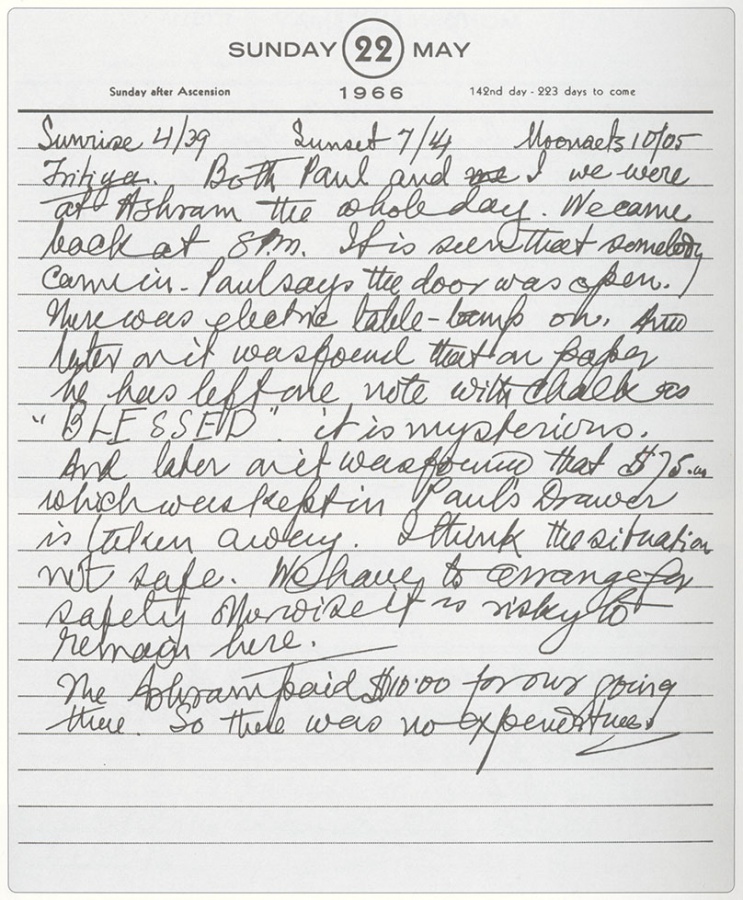 SUNDAY 22 MAY
Sunday after Ascension 1966 142nd day - 223 days to come
Sunrise 4/39 Sunset 7/4 Moonsets 10/05
Tritiya. Both Paul and me I we were
at Ashram the whole day. We came
back at 8 P.M. It is seen that somebody
came in - Paul says the door was open.
There was electric table-lamp on. And
later on it was found that on paper
he has left one note with chalk as
"BLESSED". it is mysterious.
And later on it was found that $75.00
which was kept in Paul's Drawer
is taken away. I think the situation
not safe. We have to arrange for
safety otherwise it is risky to
remain here.
The Ashram paid $10.00 for our going
there. So there was no expenditures.